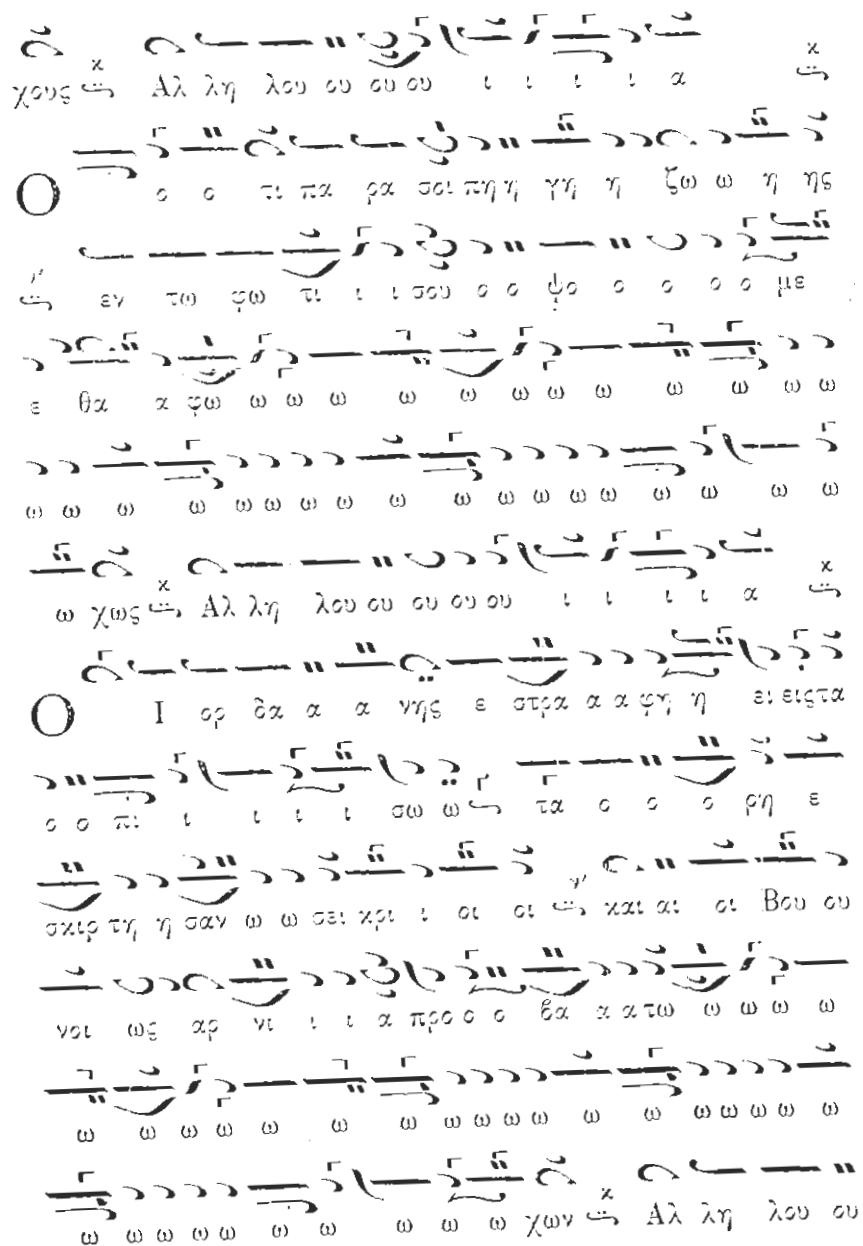 χους Αλ λη λου ου ου ου ι ι ι ι α
Ο ο ο τι πα ρα σοι πη η γη η ζω ω η ης
εν τω φω τι ι ι σου ο ο ψο ο ο ο ο με
ε θα α φω ω ω ω ω ω ω ω ω ω ω ω ω
ω ω ω ω ω ω ω ω ω ω ω ω ω ω ω ω ω ω
ω χως Αλ λη λου ου ου ου ου ι ι ι ι α
Ο Ι ορ δα α α νης ε στρα α α φη η εις τα
ο ο πι ι ι ι ι σω ω τα ο ο ο ρη ε
σκιρ τη η σαν ω ω σει κρι ι οι οι και αι οι Βου ου
νοι ως αρ νι ι ι α προ ο ο βα α α τω ω ω ω ω
ω ω ω ω ω ω ω ω ω ω ω ω ω ω ω ω ω ω
ω ω ω ω ω ω ω ω ω ω χων Αλ λη λου ου